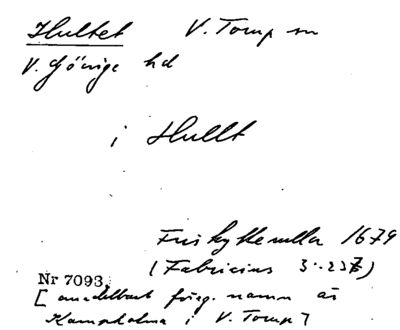 Hultet V. Torup sn
V. Göinge hd
i Hullt
Friskytterulla 1679
(Fabricius 3:237)
Nr 7093.
[omedelbart föreg. namn är
Kampholma i V. Torup]